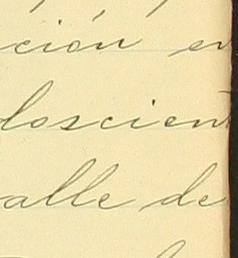 ción en
doscient
alle de